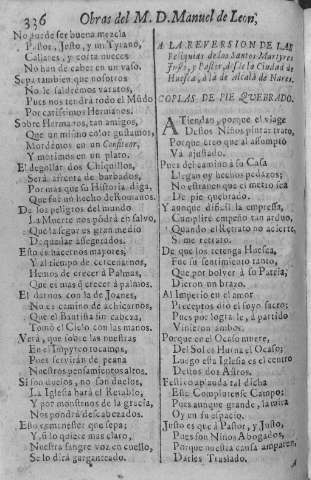 336 Obras del M. D. Manuel de Leon,
No puede ser buena mezcla
Pastor, Justo, y un Tyrano,
Callares, y corta nueces
No han de caber en un vaso.
Sepa tambien que nosotros
No le saldrèmos varatos,
Pues nos tendrà todo el Mũdo
Por carissimos Hermanos.
Sobre Hermanos, tan amigos,
Que un mismo color gustamos,
Mordèmos en un Confiteor,
Y morimos en un plato.
El degollar dos Chiquillos,
Serà afrenta de barbados,
Por mas que su Historia diga,
Que fue un hecho de Romanos.
De los peligros del mundo
La Muerte nos podrà en salvo,
Que la segur es gran medio
De quedar assegurados.
Esto es hacernos mayores,
Y al tiempo de cercenarnos,
Hemos de crecer à Palmas,
Que es mas q̃ crecer à palmos.
El darnos con la de Joanes,
No es camino de achicarnos,
Que el Bautista sin cabeza,
Tomò el Cielo con las manos.
Verà, que sobre las nuestras
En el Empyreo tocamos,
Pues servirán de peana
Nuestros pensamientos altos.
Si son duelos, no son duelos,
La Iglesia harà el Retablo,
Y por monstruos de la gracia,
Nos pondrà descabezados.
Esto es menester que sepa;
Y si lo quiere mas claro,
Nuestra sangre voz en cuello,
Se lo dirà garganteado.
A LA REVERSION DE LAS
Reliquias de los Santos Martyres
Justo, y Pastor, desde la Ciudad de
Huesca, à la de Alcalà de Nares.
COPLAS DE PIE QUEBRADO.
ATiendan, porque el viage
Destos Niños pintar trato,
Porque creo que al assumpto
Và ajustado.
Pues del camino à su Casa
Llegan oy hechos pedazos;
No estrañen que el metro sea
De pie quebrado.
Y aunque dificil la empressa,
Cumplirè empeño tan arduo,
Quando el Retrato no acierte,
Si me retrato.
De que los tenga Huesca,
Fue su sentimiento tanto,
Que por bolver à su Patria,
Dieron un brazo.
Al Imperio en el amor
Preceptos diò el suyo sacro;
Pues por lograrle, à partido
Vinieron ambos.
Porque en el Ocaso muere,
Del Sol es Hurna el Ocaso;
Luego esta Iglesia es el centro
Destos dos Astros.
Festivo aplauda tal dicha
Este Complutense Campo;
Pues aunque grande, la mira
Oy en su espacio.
Justo es que à Pastor, y Justo,
Pues son Niños Abogados,
Porque nuestra causa amparen,
Darles Traslado.
A